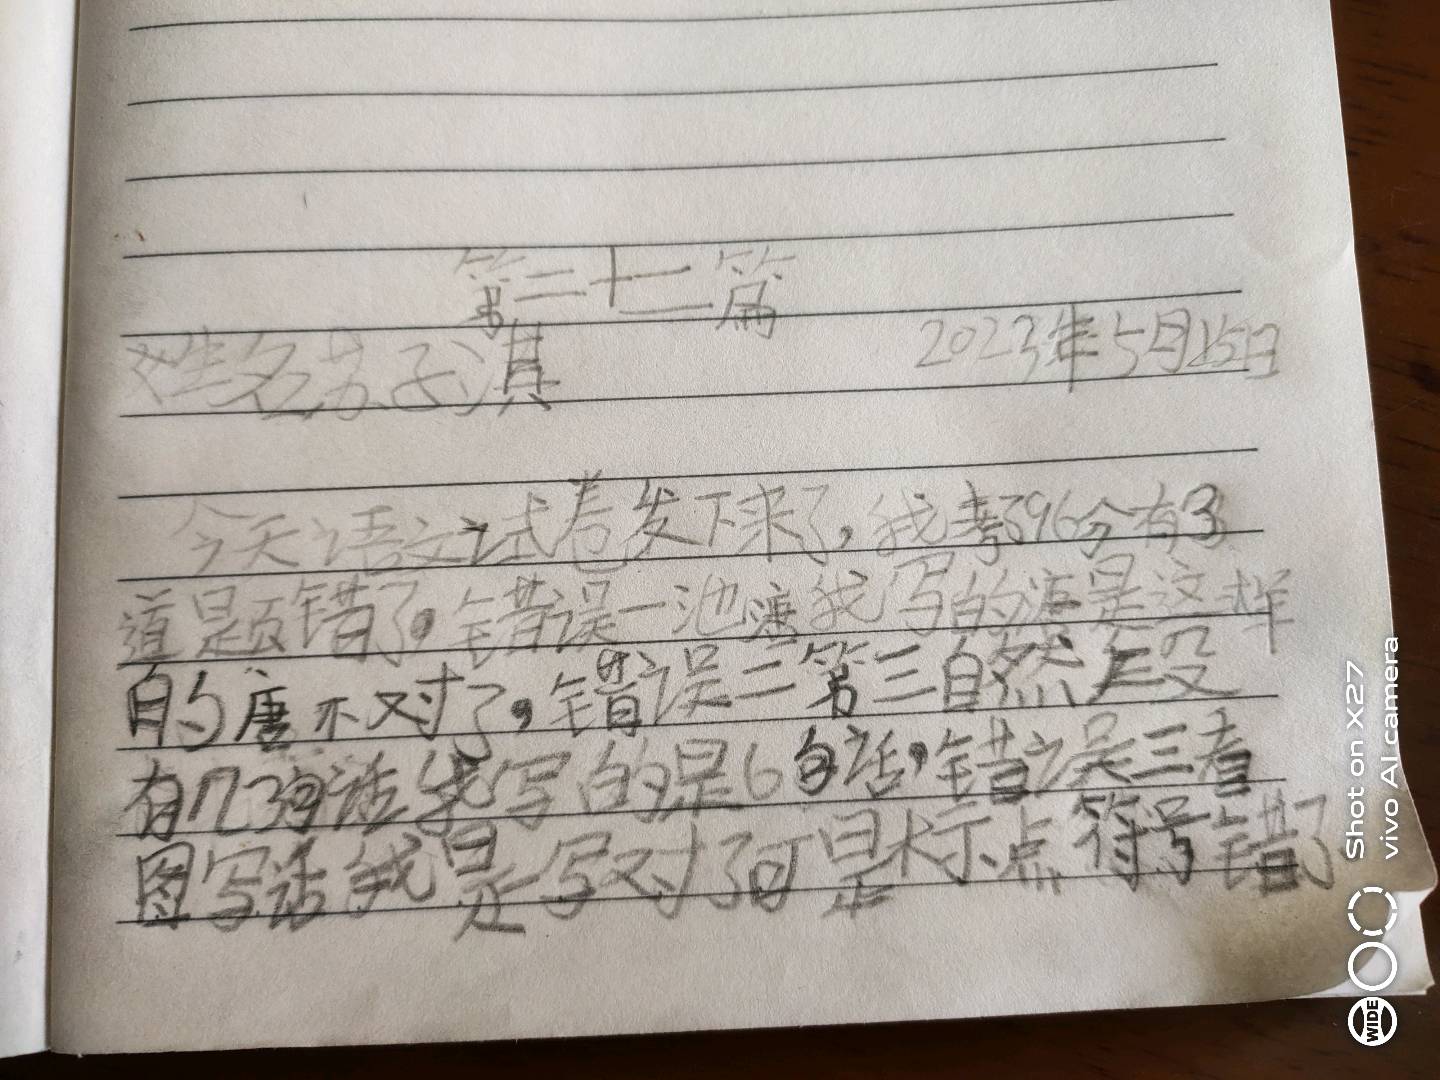 第二十二篇
姓名苏子淇 2023年5月15日
今天语文试卷发下来了,我考了96分有3
道题错了。错误一池塘我写的塘是这样
的唐不对了,错误二第三自然段
有几句话我写的是6句话,错误三看
图写话我是写对了可是标点符号错了
Shot on X27
vivo AI camera
WIDE